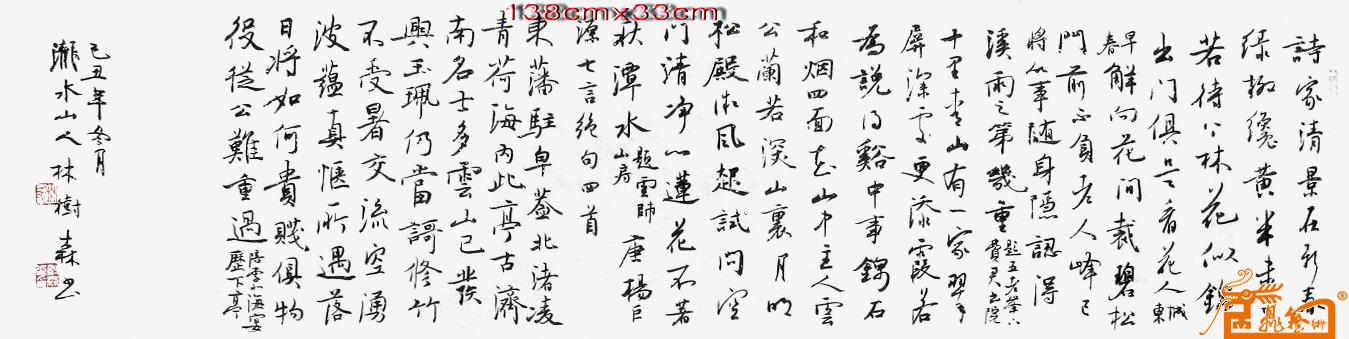 138cmx33cm
詩家清景在新春
绿柳纔黄半未
若待上林花似錦
出门俱是看花人 城東
早春 解向花間裁碧松
门前不負老人峰已
將心事随身隱認得
溪雨之第幾重 题五老峯下費君书院
十里青山有一家翠
屏深處更添霞若
為說得谿中事錦石
和烟四面花 山中主人雲
公蘭若深山裏月明
松殿微風起試问空
门清净心蓮花不著
秋潭水 题雲師山房 唐楊巨
源七言絶句四首
東藩駐皁蓋北渚凌
青荷海内此亭古濟
南名士多雲山已發
興玉珮仍當謌修竹
不受暑交流空湧
波蕴真惬所遇落
日將如何貴賤俱物
役從公難重過 陪李北海宴歷下亭
己丑年冬月
濰水山人林樹森书